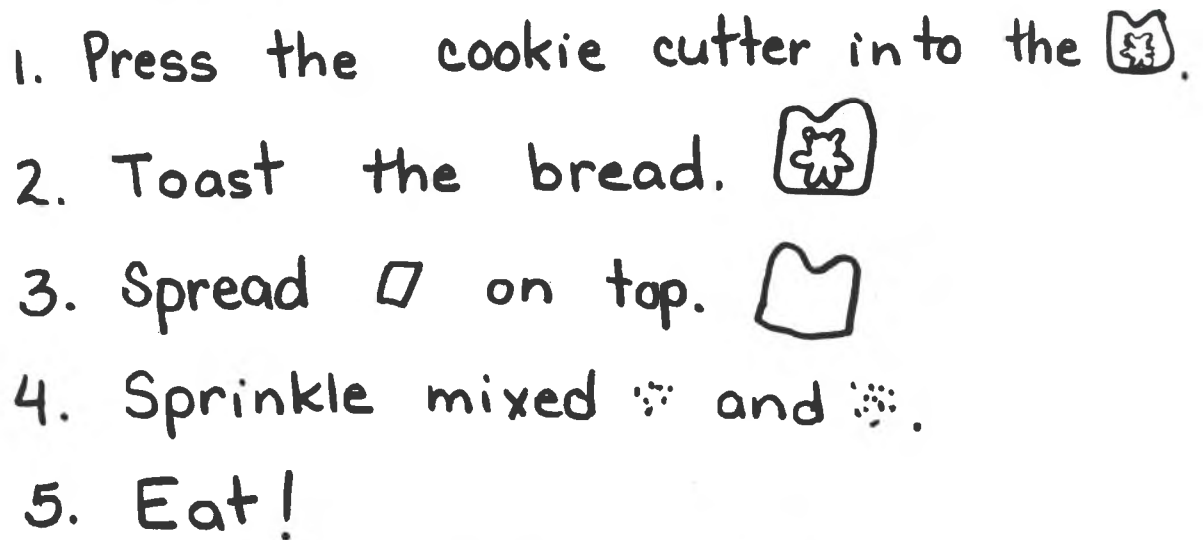 1. Press the cookie cutter into the .
2. Toast the bread.
3. Spread on top.
4. Sprinkle mixed and .
5. Eat!